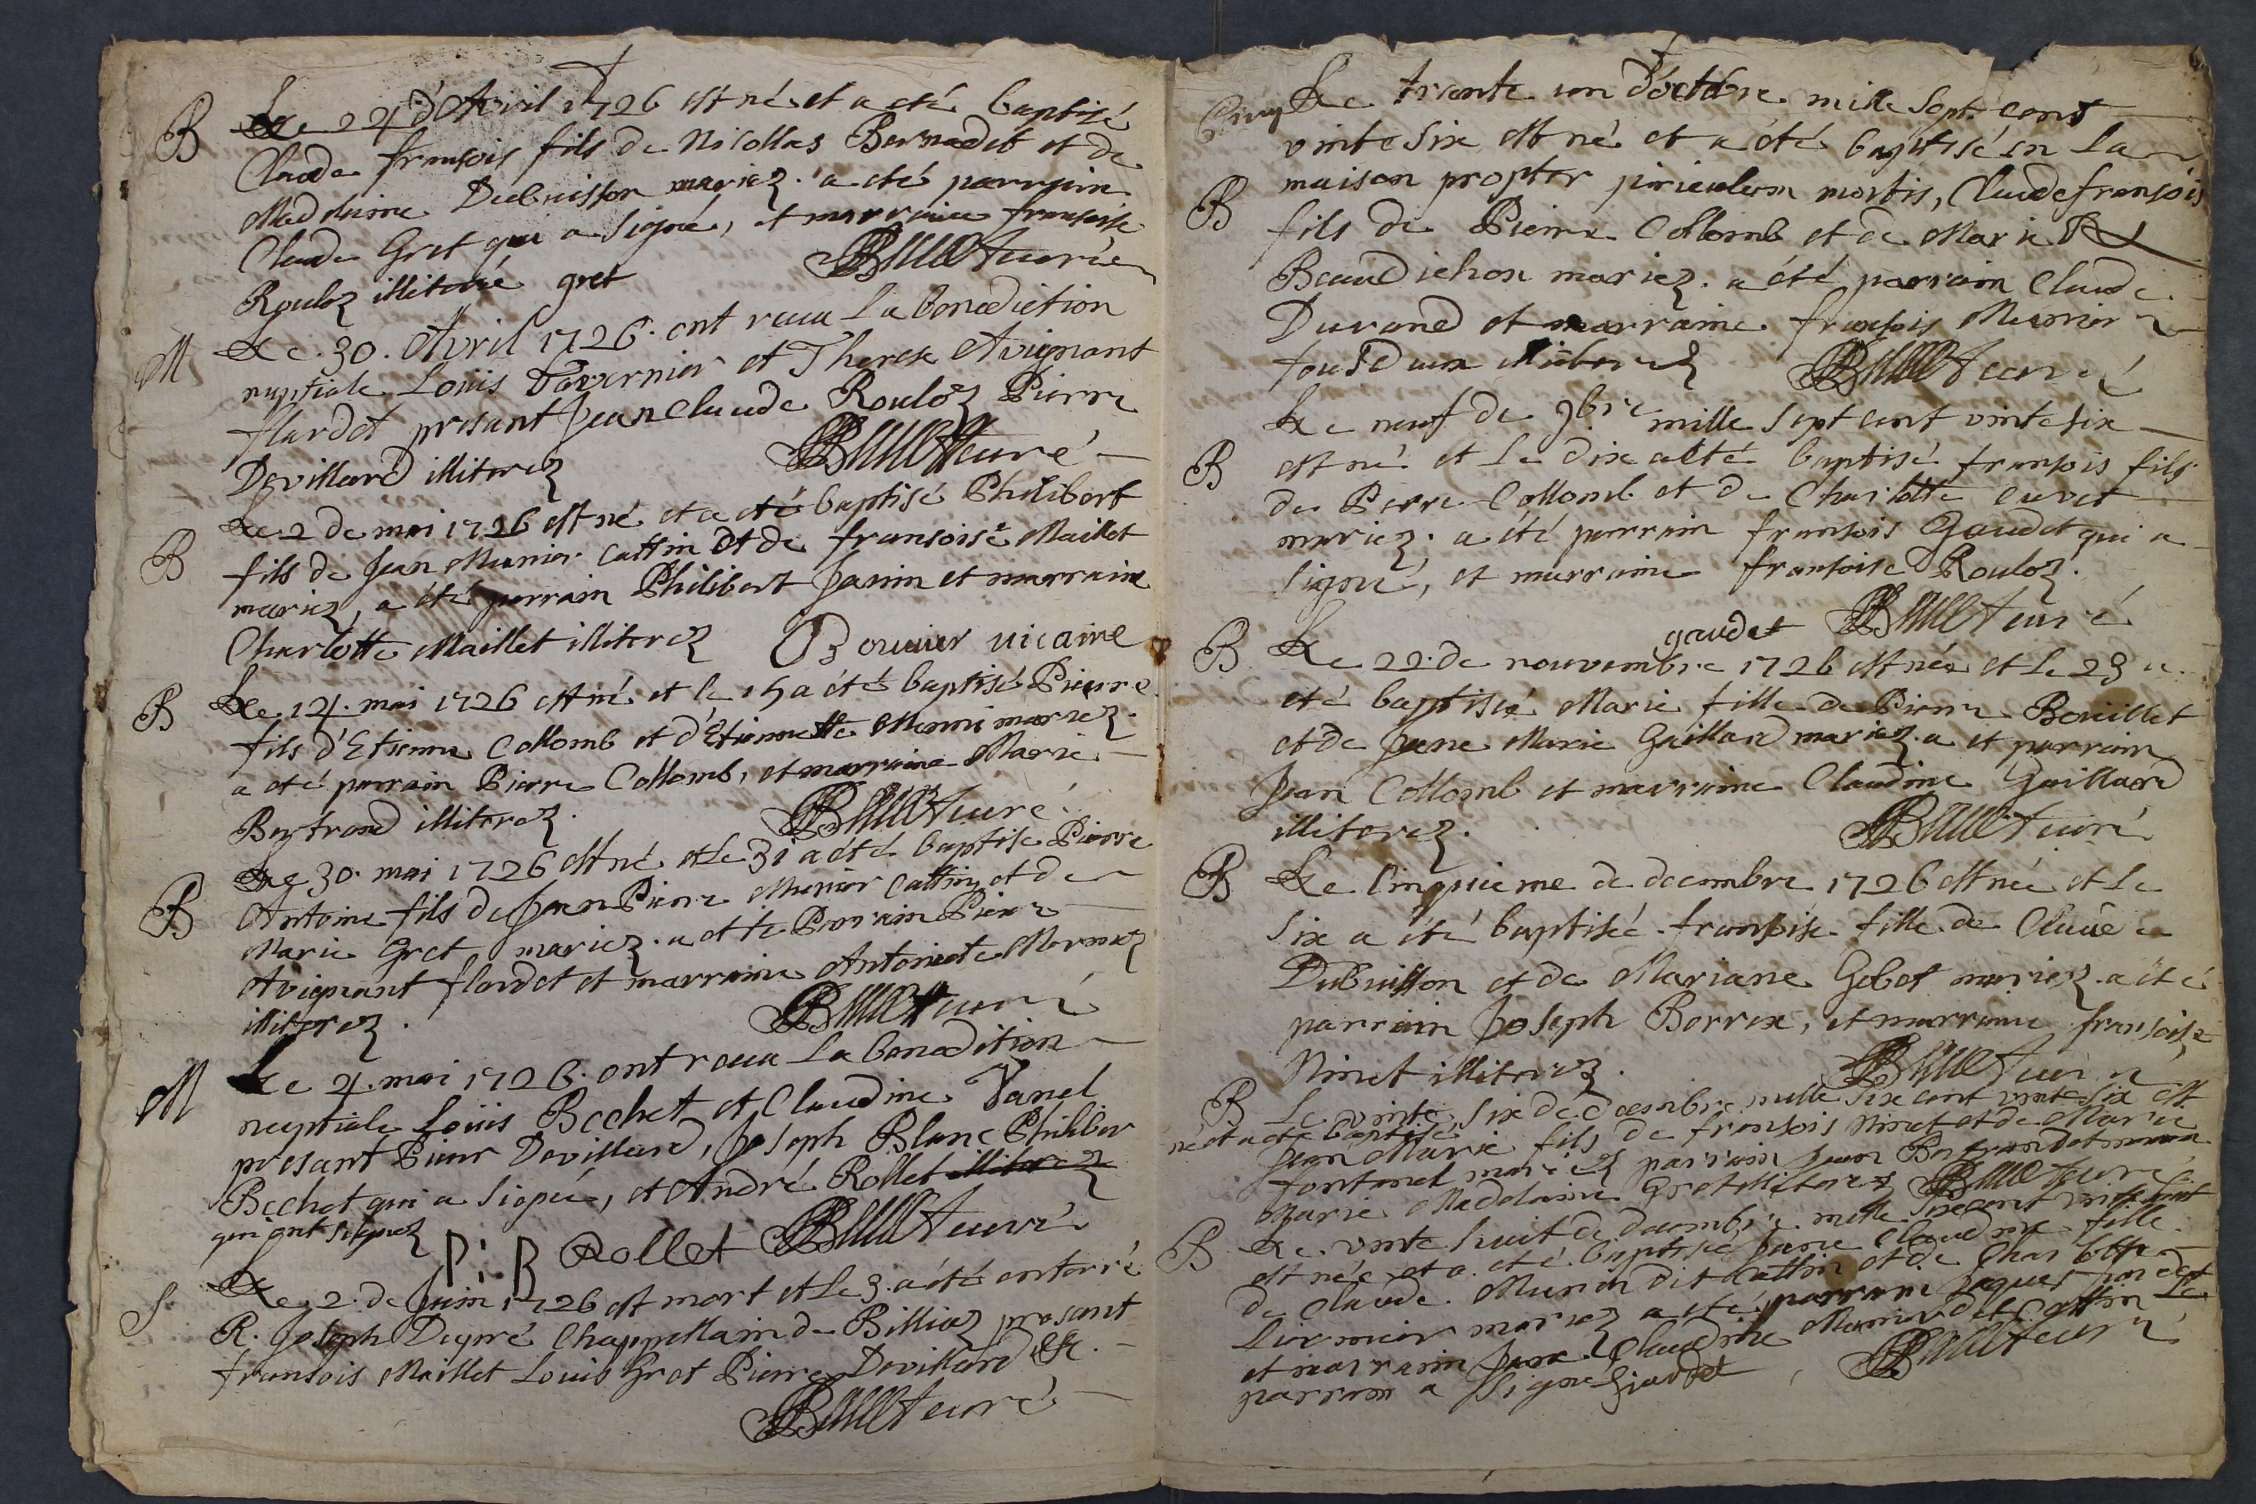 B Le 24 d'Avril 1726 est né et a eté baptisé
Claude fransois fils de Nicollas Bernadet et de
Madelaine Dubuisson mariez. a eté parrain
Claude Gret qui a signé, et marraine fransoise
Rouloz illiteré gret curé
M Le 30. Avril 1726. ont recu la benediction
nuptiale Louis Tavernier et Therese Avignant
flardet presant Jean Claude Rouloz Pierre
Devillard illiterez curé
B Le 2 de mai 1726 est né et a eté baptisé Philibert
fils de Jean Munier Cattin et de fransoise Maillet
mariez, a été parrain Philibert Janin et marraine
Charlotte Maillet illiterez Bouvier vicaire
B Le 14. mai 1726 est né et le 15 a été baptisé Pierre
fils d'Etienne Collomb et d'Etiennette Munie mariez.
a eté parrain Pierre Collomb, et marraine Marie
Bertrand illiterez. curé
B Le 30. mai 1726 est né et le 31 a été baptisé Pierre
Antoine fils de Jean Pierre Munier Cattin et de
Marie Gret mariez. a etté Parrain Pierre
Avignant flardet et marraine Antoinete
illiterez. curé
M Le 4. mai 1726. ont recu la benedition
nuptiale Loüis Bechet et Claudine Vanel
presant Pierre Devillard, Joseph Blanc Philiber
Bechet qui a signé, et André Rollet illiterez
qui ont signez P. B Rollet curé
S. Le 2. de Juin 1726 est mort et le 3. a été enterré
R. Joseph Dupré Chappellain de Billiaz presant
fransois Maillet Louis Gret Pierre Devillard &c.
curé
Le trante un d'octobre mille sept cent
vinte six est né et a été baptisé en la
B maison propter periculum mortis, Claude fransois
fils de Pierre Collomb et de Marie
Beaudichon mariez. a été parrain Claude
Durand et marraine fransois Meunier
tous deux illiterez curé
Le neuf de 9bre mille sept cent vinte six
B est né et le dix a eté baptisé fransois fils
de Pierre Collomb et de Charlotte Cuvet
mariez. a été parrain fransois Gaudet qui a
signé, et marraine fransoise Rouloz.
gaudet curé
B Le 22. de nouvembre 1726 est née et le 23 a
eté baptisée Marie fille de Pierre Bouillet
et de Jane Marie Gaillard mariez. a et parrain
Jean Collomb et marraine Claudine Gaillard
illiterez. curé
B Le Cinquieme de decembre 1726 est née et le
six a été baptisée fransoise fille de Claude
Dubuisson et de Mariane Gobet mariez. a été
parrain Joseph Borrex, et marraine fransoise
Ninet illiterez. curé
B Le vinte six de decembre mille six cent vint six est
né et a eté baptisé
Jean Marie fils de fransois Ninet et de Marie
fontanel mariez parrain Jean Bertrand et marrai
Marie Madelaine Gret illiterez curé
B Le vinte huit de decembre mille sixcent vint six
est née et a eté baptisée Jane Claudine fille
de Claude Munier dit Cattin et de Charlotte
mariez a eté parrain Jaques
et marrain Jane Claudine Munier dit Cattin Le
parrain a signe curé